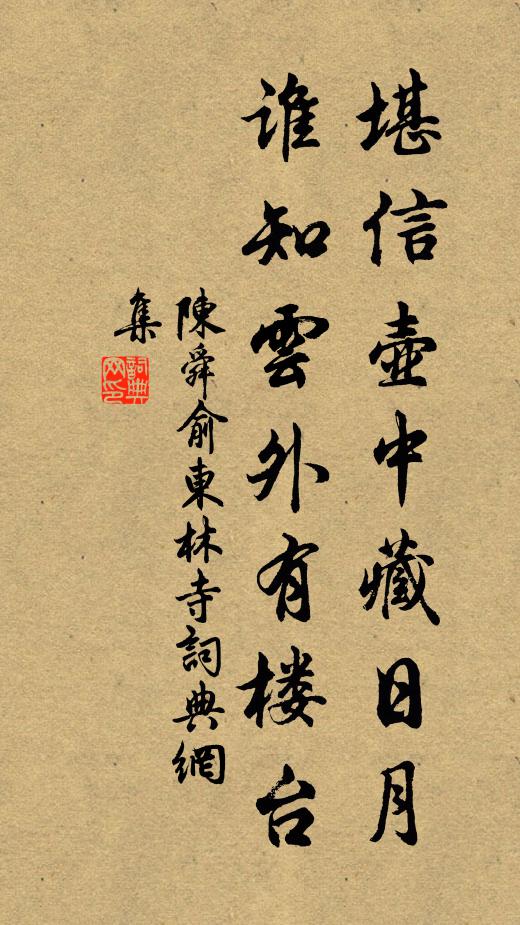 堪信壺中藏日月
谁知雲外有楼台
陳舜俞東林寺詞典網
集
詞典网印